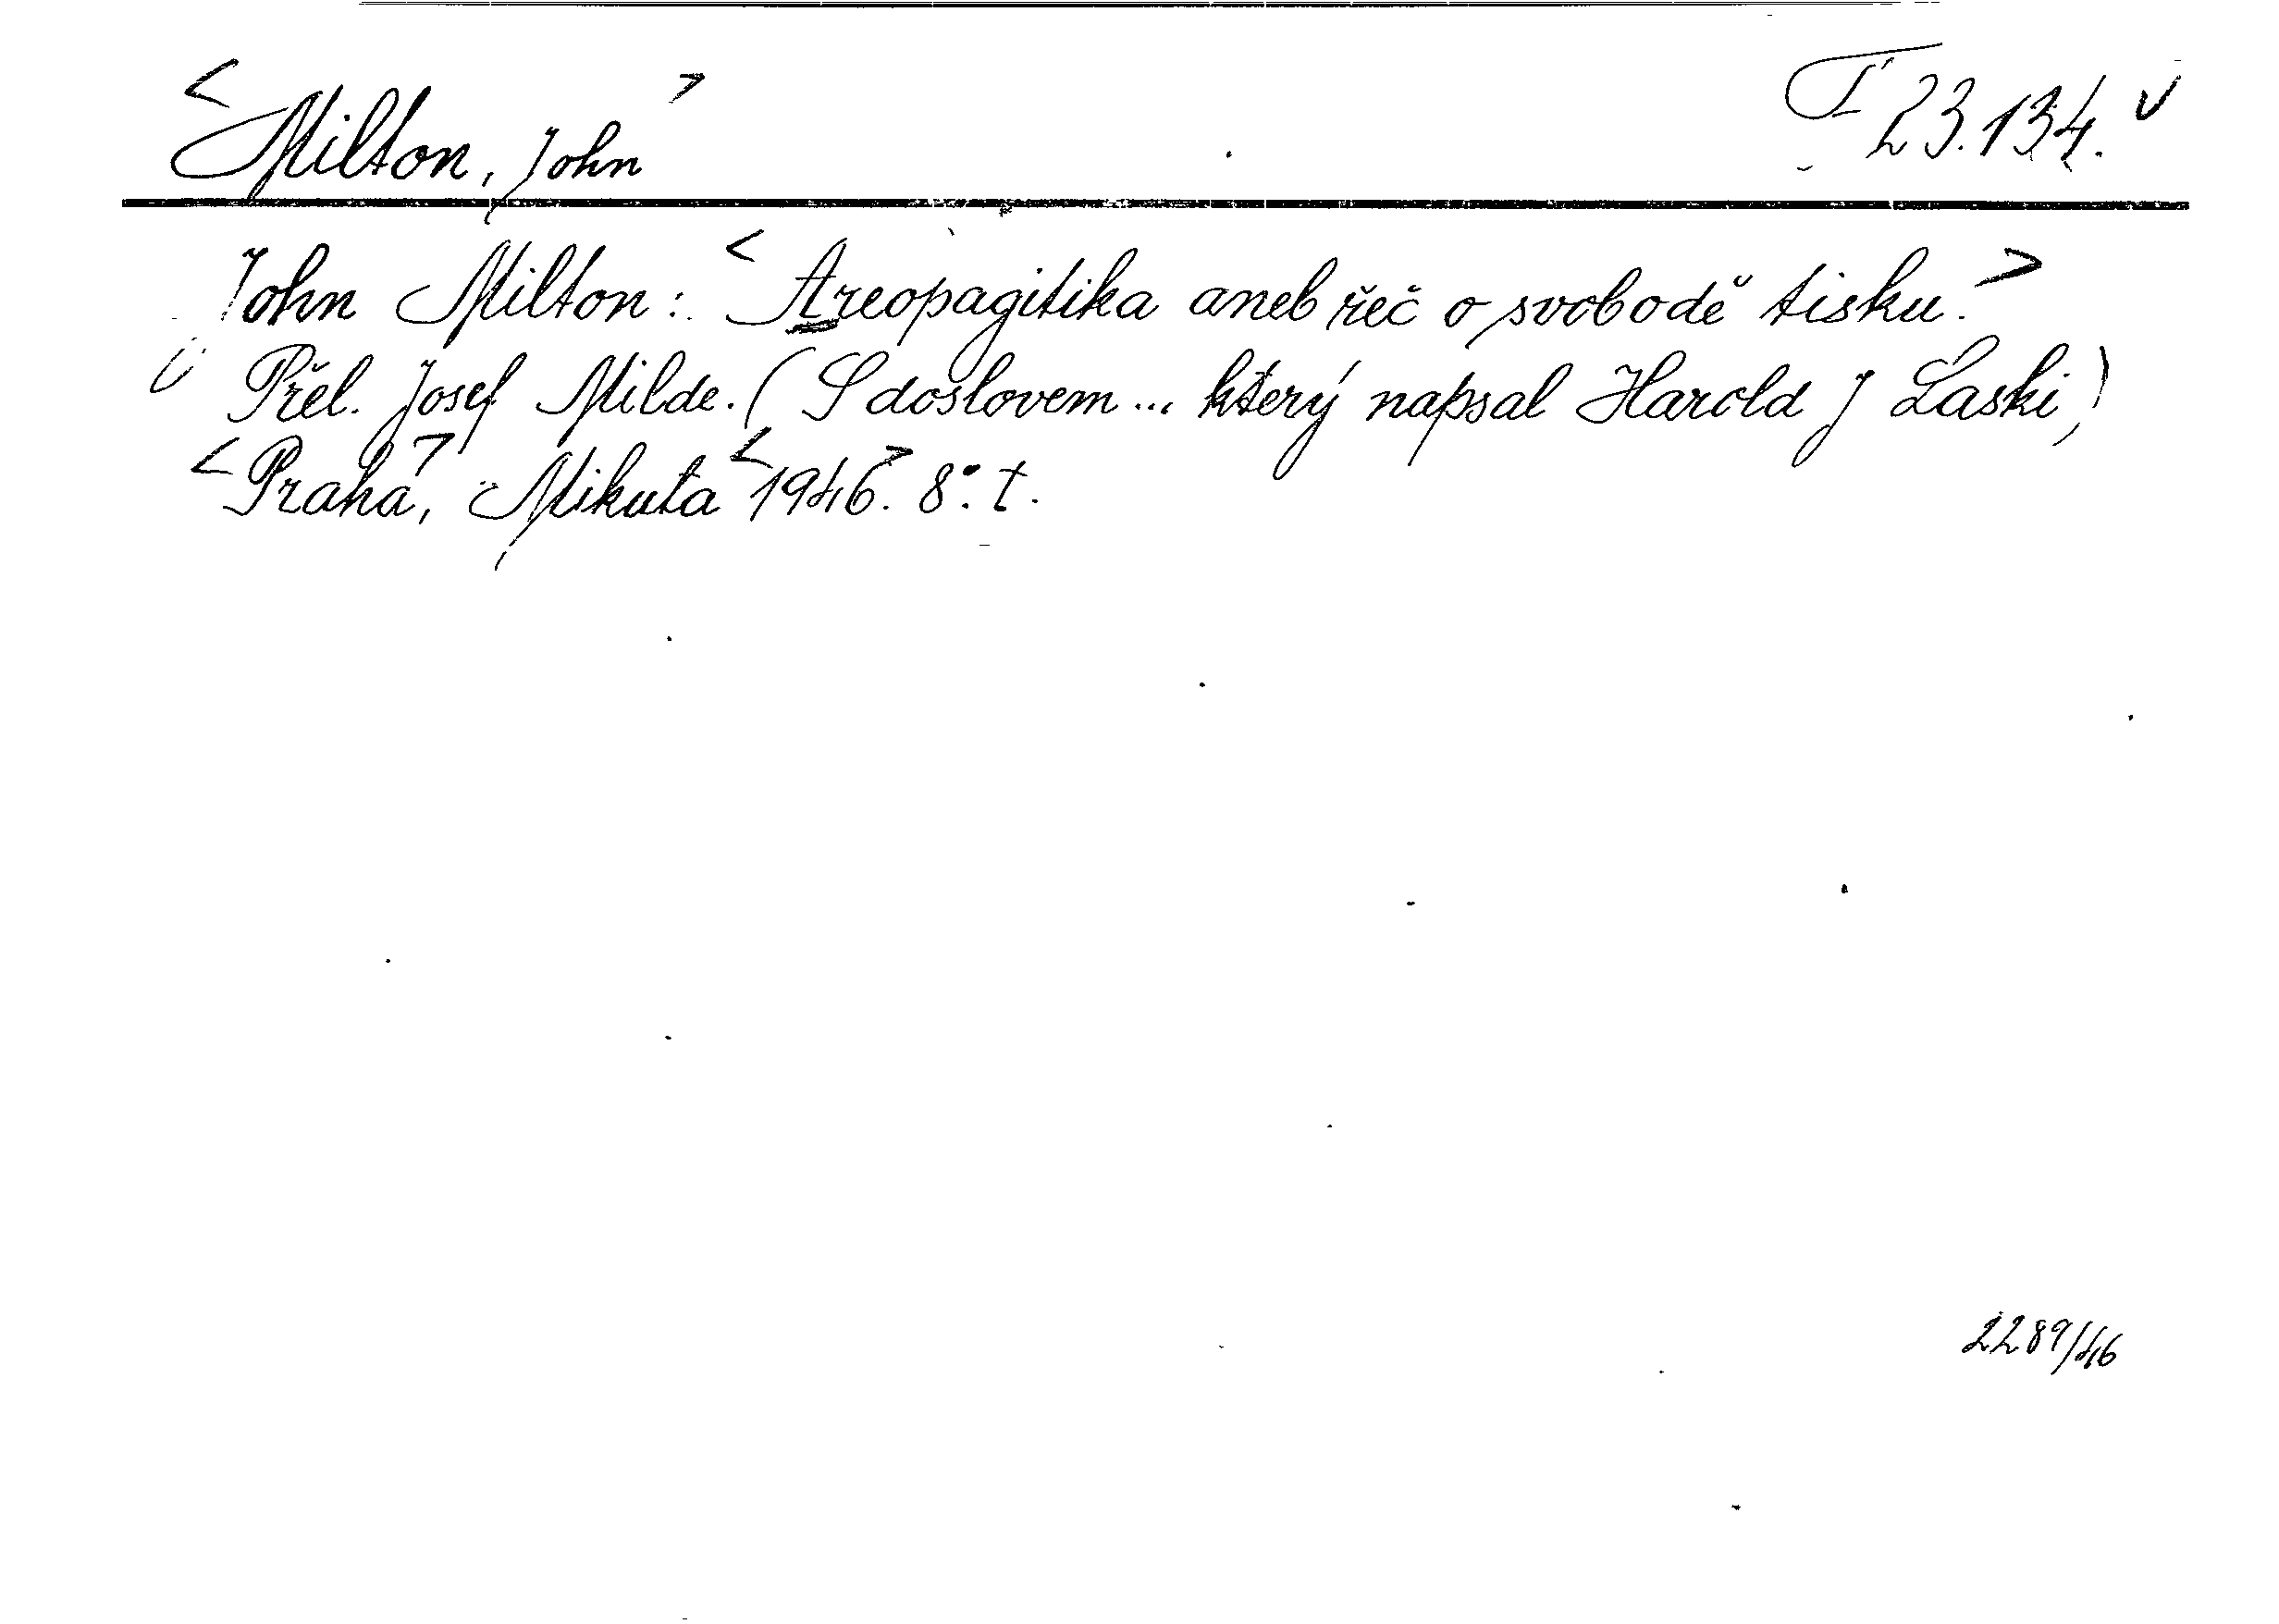 <Milton, John> I 23.134. v
John Milton: <Areopagitika aneb řeč o svobodě tisku.>
Přel. Josef Milde. (S doslovem... který napsal Harold J Laski)
<Praha>, Mikuta <1946>. 8°. t.
2289/46